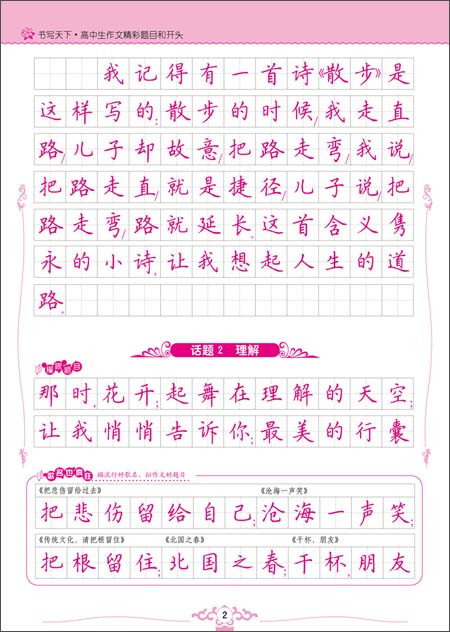 书写天下·高中生作文精彩题目和开头
我记得有一首诗《散步》是
这样写的:散步的时候/我走直
路/儿子却故意/把路走弯/我说/
把路走直/就是捷径/儿子说/把
路走弯/路就延长。这首含义隽
永的小诗,让我想起人生的道
路。
话题2 理解
那时花开;起舞在理解的天空;
让我悄悄告诉你;最美的行囊
描流行好歌名,拟作文好题目
《把悲伤留给过去》
《沧海一声笑》
把悲伤留给自己;沧海一声笑;
《传统文化,请把根留住》
《北国之春》
《干杯,朋友》
把根留住;北国之春;干杯,朋友
2